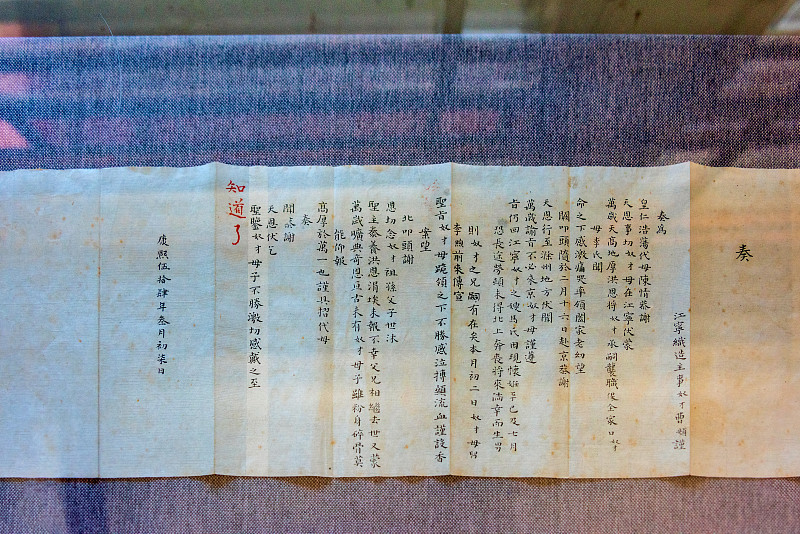 奏
江寧織造主事奴才曹頫謹
奏為
皇仁浩蕩代母陳情恭謝
天恩事切奴才母在江寧伏蒙
萬歲天高地厚洪恩將奴才承嗣襲職保全家口奴才
母李氏聞
命之下感激痛哭率領闔家老幼望
闕叩頭隨於二月十六日赴京恭謝
天恩行至滁州地方伏聞
萬歲諭旨不必來京奴才母謹遵
旨仍回江寧奴才之嫂馬氏因現懷妊孕已及七月
恐長途勞頓未得北上奔喪將來倘幸而生男
則奴才之兄嗣有在矣本月初二日奴才母舅
李煦前來傳宣
聖旨奴才母跪領之下不勝感泣搏顙流血謹設香
案望
北叩頭謝
恩切念奴才祖孫父子世沐
聖主豢養洪恩涓埃未報不幸父兄相繼去世又蒙
萬歲曠典奇恩亙古未有奴才母子雖粉身碎骨莫
能仰報
高厚於萬一也謹具摺代母
奏
聞恭謝
天恩伏乞
聖鑒奴才母子不勝激切感戴之至
知道了
康熙伍拾肆年叁月初柒日